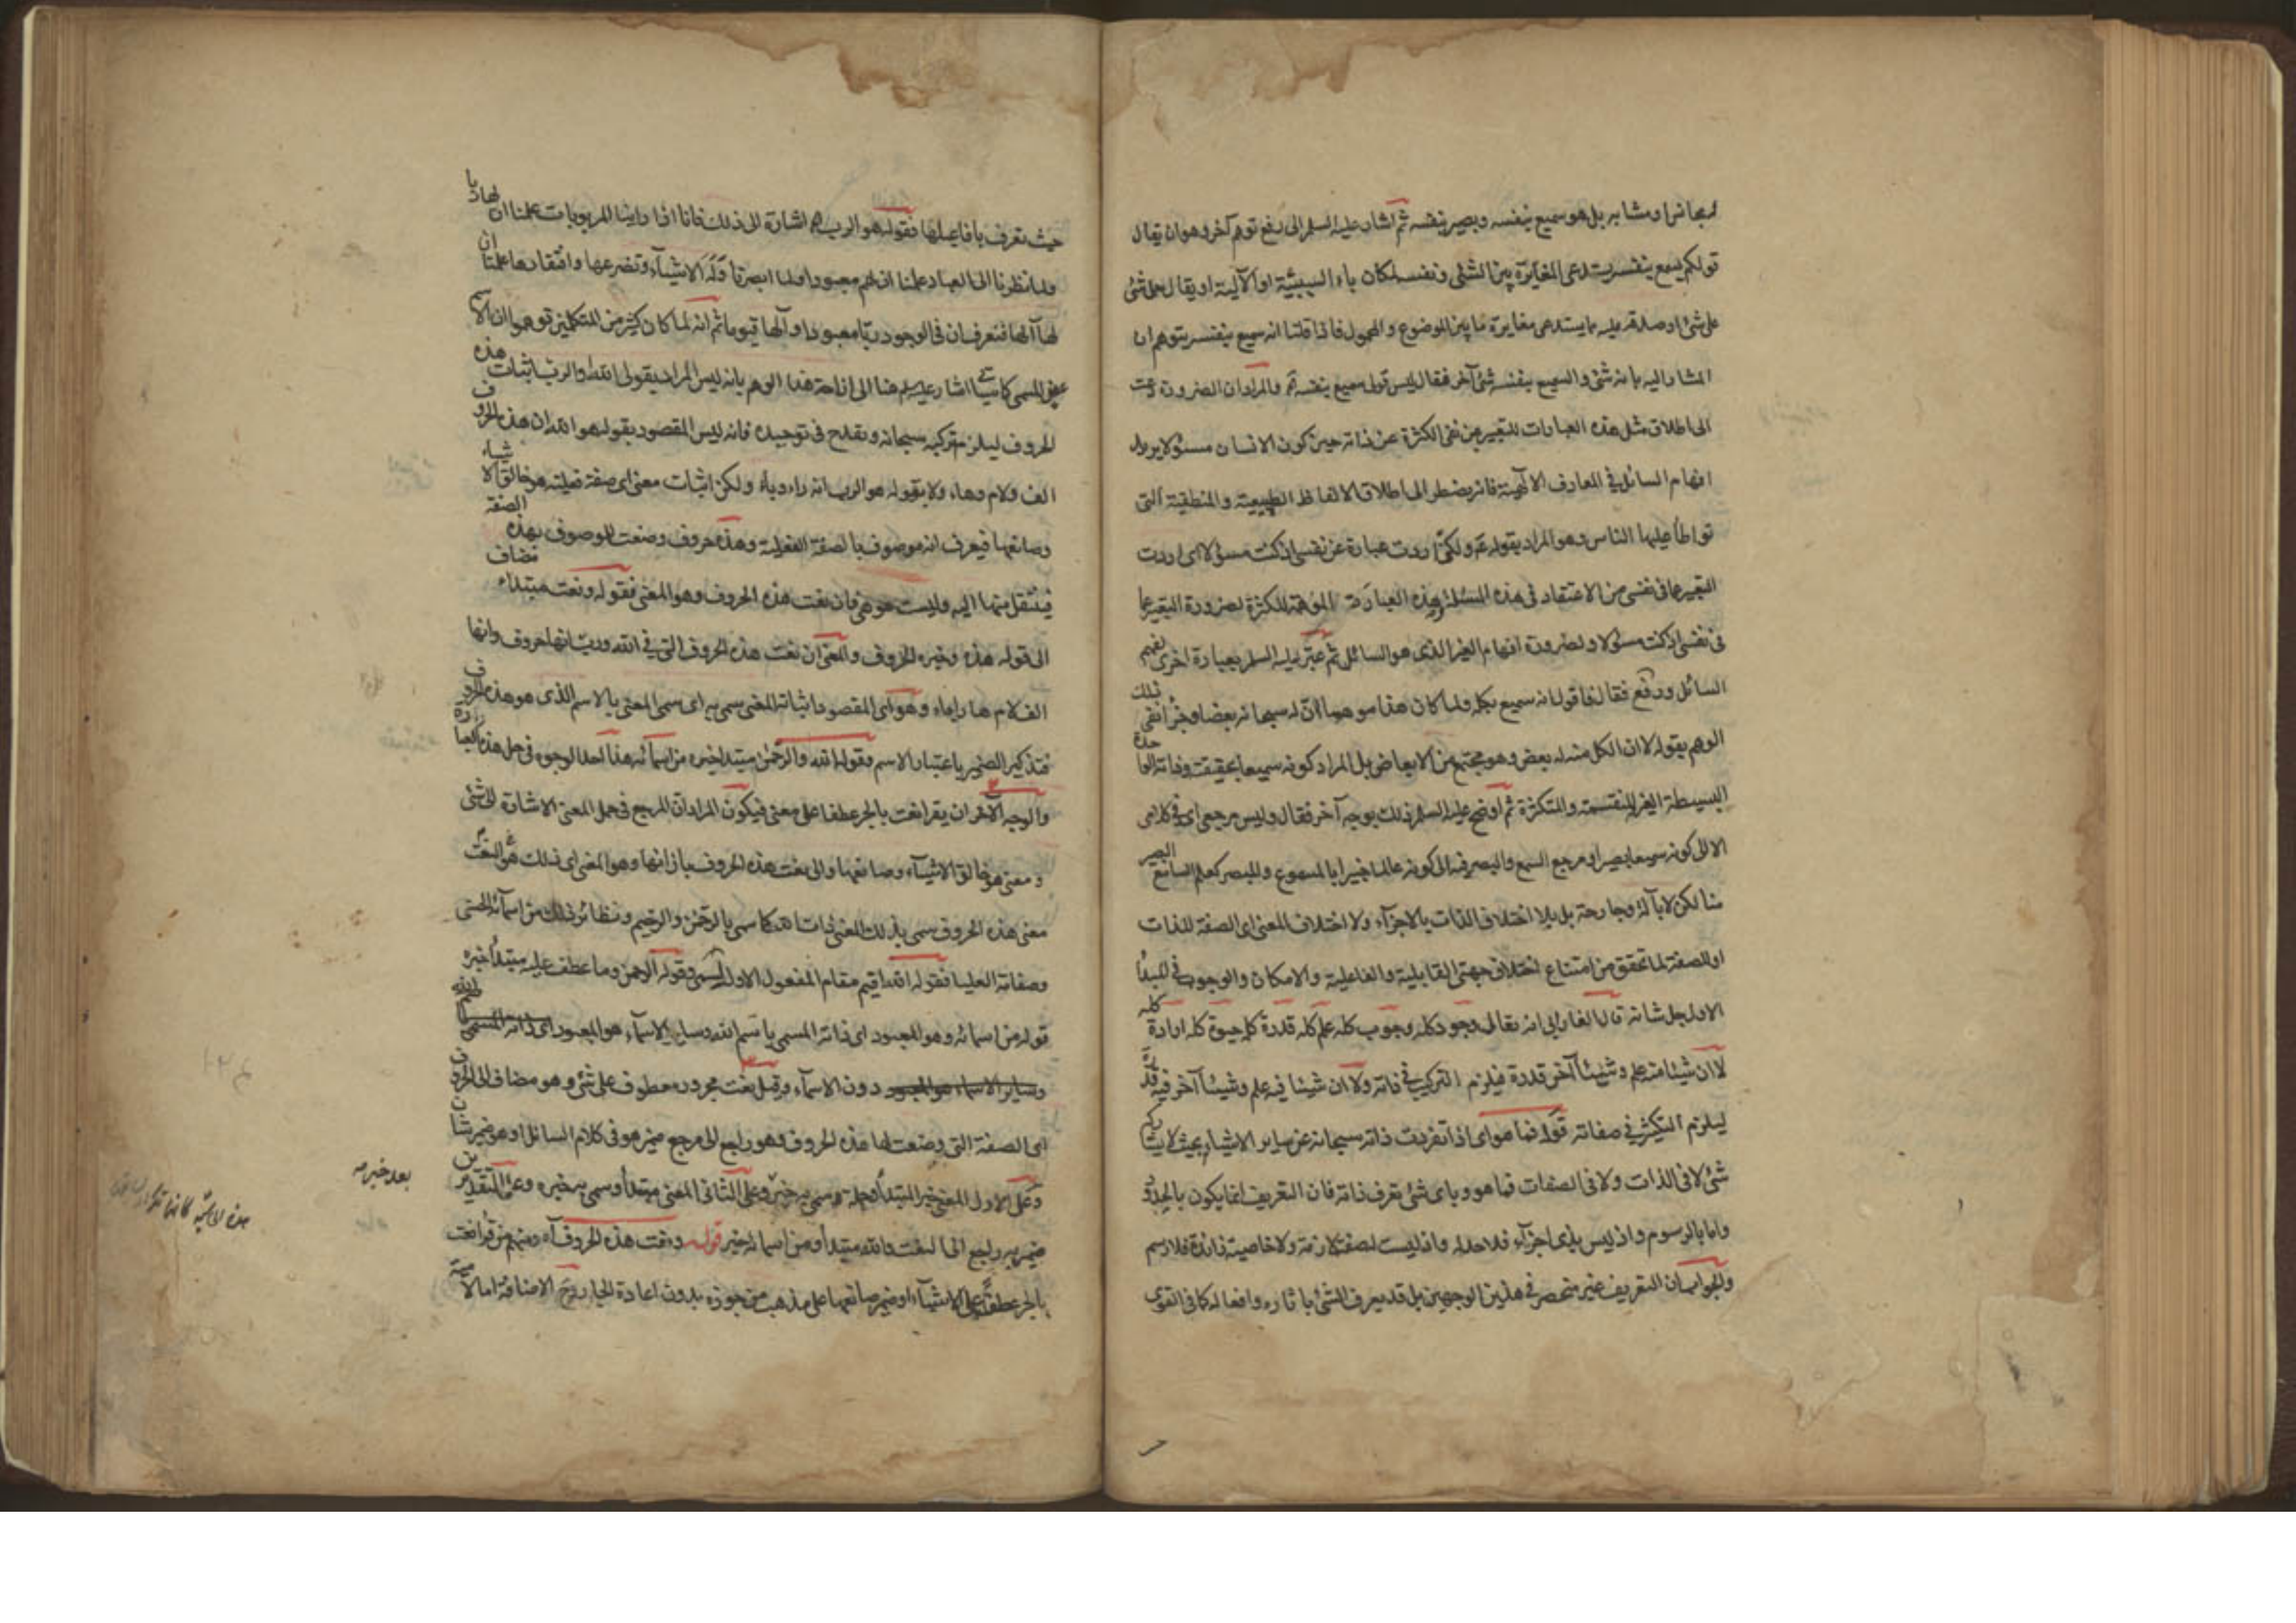 او مشابه بل هو سميع بنفسه وبصير بنفسه ثم اشار عليه السلم الى دفع توهم آخر وهو ان يقال
قولكم يسمع بنفسه يستدعى المغايرة بين الشئ ونفسه لمكان باء السببيّة او الآلية او يقال حمل شئ
على شئ او صدقه عليه مما يستدعى مغايرة ما بين الموضوع والمحمول فاذا قلنا انه سميع بنفسه يتوهم ان
المشار اليه بانه شئ والسميع بنفسه شئ آخر فقال ليس قولى سميع بنفسه آه والمراد ان الضرورة دعت
الى اطلاق مثل هذه العبارات للتعبير عن نفى الكثرة عن ذاته حين كون الانسان مسئولا يريد
افهام السائل فى المعارف الالٓهية فانه يضطر الى اطلاق الالفاظ الطبيعية والمنطقية التى
تواطأ عليها الناس وهو المراد بقوله ع ولكنى اردت عبارة عن نفسى اذ كنت مسئولا اى اردت
التعبير عما فى نفسى من الاعتقاد فى هذه المسئلة بهذه العبارة الموهمة للكثرة لضرورة التعبير عما
فى نفسى اذ كنت مسئولا ولضرورة افهام الغير الذى هو السائل ثم عبّر عليه السلم بعبارة اخرى لفهم
السائل ودفع فقال فاقول انه سميع بكله ولما كان هذا موهما لانّ له سبحانه بعضا وجزأ نفى ذلك
الوهم بقوله لا ان الكل منه له بعض وهو مجتمع من الابعاض بل المراد كونه سميعا بحقيقته وذاته الواحدة
البسيطة الغير المنقسمة والمتكثرة ثم اوضح عليه السلم ذلك بوجه آخر فقال وليس مرجعى اى فى كلامى
الا الى كونه سميعا بصيرا ومرجع السمع والبصر فيه الى كونه عالما خبيرا بالمسموع والمبصر كعلم السامع البصير
منا لكن لا بآلة وجارحة بل بلا اختلاف الذات بالاجزآء ولا اختلاف المعنى اى الصفة للذات
او للصفة لما تحقق من امتناع اختلاف جهتى القابلية والفاعلية والامكان والوجوب فى المبدأ
الاول جل شانه قال الفارابى انه تعالى وجود كله وجوب كله علم كله قدرة كله حيوة كله ارادة كله
لا ان شيئا منه علم وشيئا آخر قدرة فيلزم التركيب فى ذاته ولا ان شيئا فيه علم وشيئا آخر فيه قدرة
ليلزم التكثر فى صفاته قوله فما هو اى اذا تفردت ذاته سبحانه عن ساير الاشياء بحيث لا يشاركه
شئ لا فى الذات ولا فى الصفات فما هو وباى شئ يعرف ذاته فان التعريف انما يكون بالحدود
واما بالرسوم واذ ليس بذى اجزآء فلا حد له واذ ليست له صفة لازمة ولا خاصية زائدة فلا رسم
والجواب ان التعريف غير منحصر فى هذين الوجهين بل قد يعرف الشئ باثاره وافعاله كما فى القوى
حيث تعرف بافاعيلها فقوله هو الرب اشارة الى ذلك فانا اذا راينا المربوبات علمنا ان لها ربا
ولما نظرنا الى العباد علمنا ان لهم معبودا ولما ابصرنا وله الاشيآء وتضرعها وافتقارها علمنا ان
لها آلها فنعرف ان فى الوجود ربّا معبودا وآلها قيوما ثم انه لما كان كثير من المتكلمين توهموا ان الاسم
عين المسمى كما اشار عليه السلم هنا الى ازاحة هذا الوهم بانه ليس المراد بقولى الله والرب اثبات هذه
الحروف ليلزم تركبه سبحانه ويقدح فى توحيده فانه ليس المقصود بقوله هو الله ان هذه الحروف
الف ولام وهاء ولا بقوله هو الرب انه راء وباء ولكن اثبات معنى اى صفة فعلية هو خالق الاشياء
وصانعها فيعرف انه موصوف بالصفة الفعلية وهذه حروف وضعت للموصوف بهذه الصفة
فينتقل منها اليه وليست هو هى فان نعت هذه الحروف وهو المعنى فقوله ونعت مبتداء مضاف
الى قوله هذه وخبره الحروف والمعنى ان نعت هذه الحروف التى فى الله ورب انها حروف وانها
الف لام ها را باء وهو اى المقصود اثباته المعنى سمى به اى سمى المعنى بالاسم الذى هو هذه الحروف
فتذكير الضمير باعتبار الاسم وقوله الله والرحمن مبتدا خبره من اسمآئه هذا احد الوجوه فى حل هذه العبارة
والوجه الآخر ان يقرا نعت بالجر عطفا على معنى فيكون المراد ان المرجع فى حمل المعنى الاشارة الى شئ
ومعنى هو خالق الاشيآء وصانعها والى نعت هذه الحروف بازائها وهو المعنى اى ذلك النعت هو
معنى هذه الحروف سمى بذلك المعنى ذات الله كما سمى بالرحمن والرحيم ونظائر ذلك من اسمآئه الحسنى
وصفاته العليا فقوله الله اقيم مقام المفعول الاول لسمى وقوله الرحمن وما عطف عليه مبتدأ خبره
قوله من اسمائه وهو المعبود اى ذاته المسمى باسم الله وساير الاسمآء هو المعبود اى ذاته المسمى باسم الله
وساير الاسماء هو المعبود دون الاسمآء وقيل نعت مجرور معطوف على شئ وهو مضاف الى الحروف
اى الصفة التى وضعت لها هذه الحروف وهو راجع الى مرجع ضمير هو فى كلام السائل او هو ضمير شان
وعلى الاول المعنى خبر المبتدأ وجملة سمى به خبر وعلى الثانى المعنى مبتدأ وسمى به خبره وعلى التقديرين
ضمير به راجع الى النعت والله مبتدأ ومن اسمائه خبر قوله ونعت هذه الحروف آه ومنهم من قرأ نعت
بالجر عطفا على الاشيآء او ضمير صانعها على مذهب من جوزه بدون اعادة الجار و ح الاضافة اما لامية
بعد خبر صه
هذه الحاشية كانها